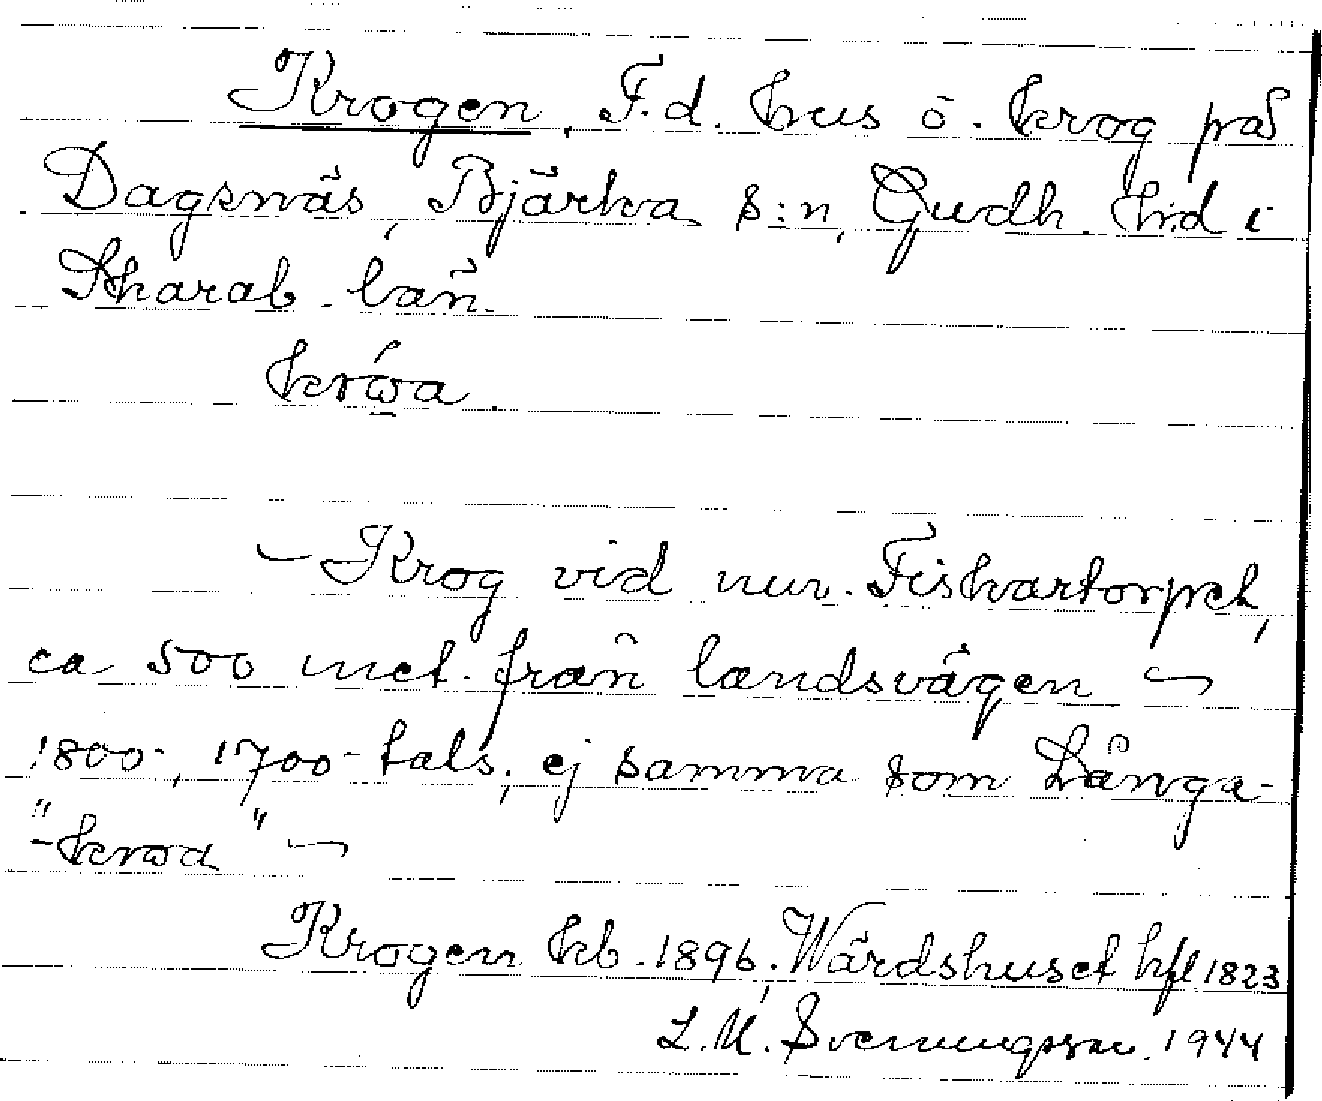 Krogen, F.d. hus o. krog på
Dagsnäs, Bjärka s:n, Gudh. hd i
Skarab. län.
krɷ́a
– Krog vid nuv. Fiskartorpet,
ca 500 met. från landsvägen –
1800-, 1700-tals, ej samma som Långa-
"-krɷa" –
Krogen kb. 1896, Wärdshuset hfl 1823
L.M. Svenungsson. 1944